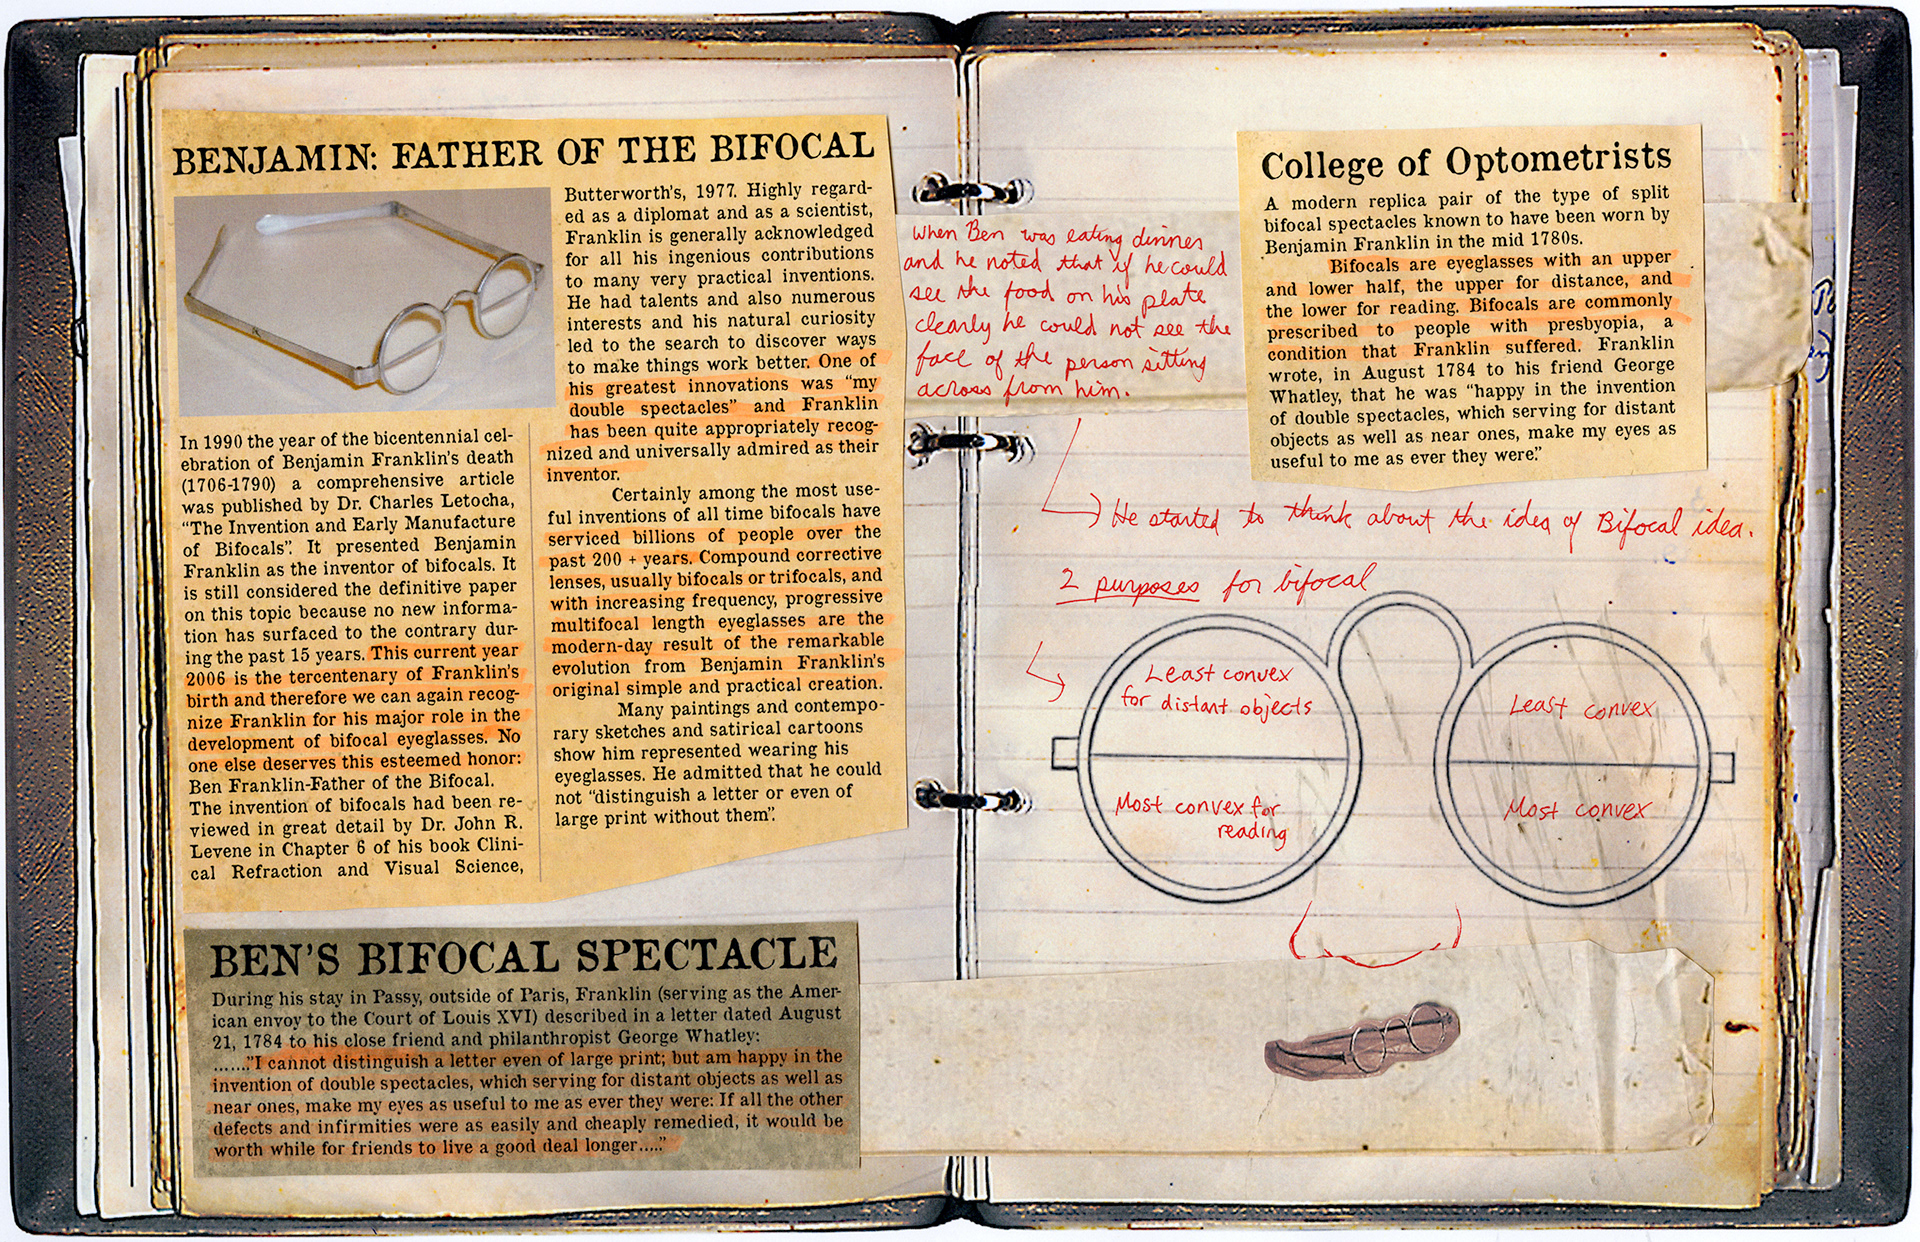 BENJAMIN: FATHER OF THE BIFOCAL
In 1990 the year of the bicentennial cel-
ebration of Benjamin Franklin's death
(1706-1790) a comprehensive article
was published by Dr. Charles Letocha,
"The Invention and Early Manufacture
of Bifocals". It presented Benjamin
Franklin as the inventor of bifocals. It
is still considered the definitive paper
on this topic because no new informa-
tion has surfaced to the contrary dur-
ing the past 15 years. This current year
2006 is the tercentenary of Franklin's
birth and therefore we can again recog-
nize Franklin for his major role in the
development of bifocal eyeglasses. No
one else deserves this esteemed honor:
Ben Franklin-Father of the Bifocal.
The invention of bifocals had been re-
viewed in great detail by Dr. John R.
Levene in Chapter 6 of his book Clini-
cal Refraction and Visual Science,
Butterworth's, 1977. Highly regard-
ed as a diplomat and as a scientist,
Franklin is generally acknowledged
for all his ingenious contributions
to many very practical inventions.
He had talents and also numerous
interests and his natural curiosity
led to the search to discover ways
to make things work better. One of
his greatest innovations was "my
double spectacles" and Franklin
has been quite appropriately recog-
nized and universally admired as their
inventor.
Certainly among the most use-
ful inventions of all time bifocals have
serviced billions of people over the
past 200 + years. Compound corrective
lenses, usually bifocals or trifocals, and
with increasing frequency, progressive
multifocal length eyeglasses are the
modern-day result of the remarkable
evolution from Benjamin Franklin's
original simple and practical creation.
Many paintings and contempo-
rary sketches and satirical cartoons
show him represented wearing his
eyeglasses. He admitted that he could
not "distinguish a letter or even of
large print without them".
BEN'S BIFOCAL SPECTACLE
During his stay in Passy, outside of Paris, Franklin (serving as the Amer-
ican envoy to the Court of Louis XVI) described in a letter dated August
21, 1784 to his close friend and philanthropist George Whatley:
......."I cannot distinguish a letter even of large print; but am happy in the
invention of double spectacles, which serving for distant objects as well as
near ones, make my eyes as useful to me as ever they were: If all the other
defects and infirmities were as easily and cheaply remedied, it would be
worth while for friends to live a good deal longer....."
When Ben was eating dinner
and he noted that if he could
see the food on his plate
clearly he could not see the
face of the person sitting
across from him.
College of Optometrists
A modern replica pair of the type of split
bifocal spectacles known to have been worn by
Benjamin Franklin in the mid 1780s.
Bifocals are eyeglasses with an upper
and lower half, the upper for distance, and
the lower for reading. Bifocals are commonly
prescribed to people with presbyopia, a
condition that Franklin suffered. Franklin
wrote, in August 1784 to his friend George
Whatley, that he was "happy in the invention
of double spectacles, which serving for distant
objects as well as near ones, make my eyes as
useful to me as ever they were."
He started to think about the idea of Bifocal idea.
2 purposes for bifocal
Least convex
for distant objects
Least convex
Most convex for
reading
Most convex